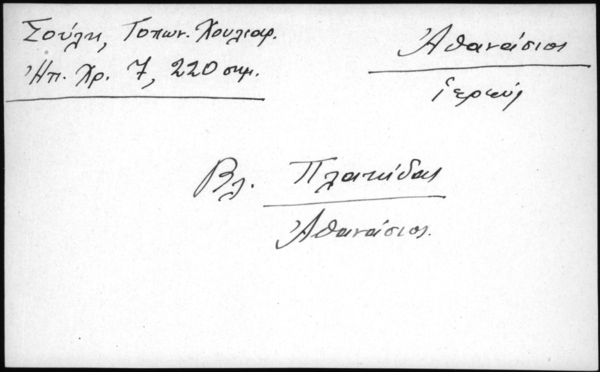 Σούλη, Τοπων. Χουλιαρ.
Ἠπ. Χρ. 7, 220 σημ.
Ἀθανάσιος
ἱερεύς
Βλ. Πλατίδας
Ἀθανάσιος.